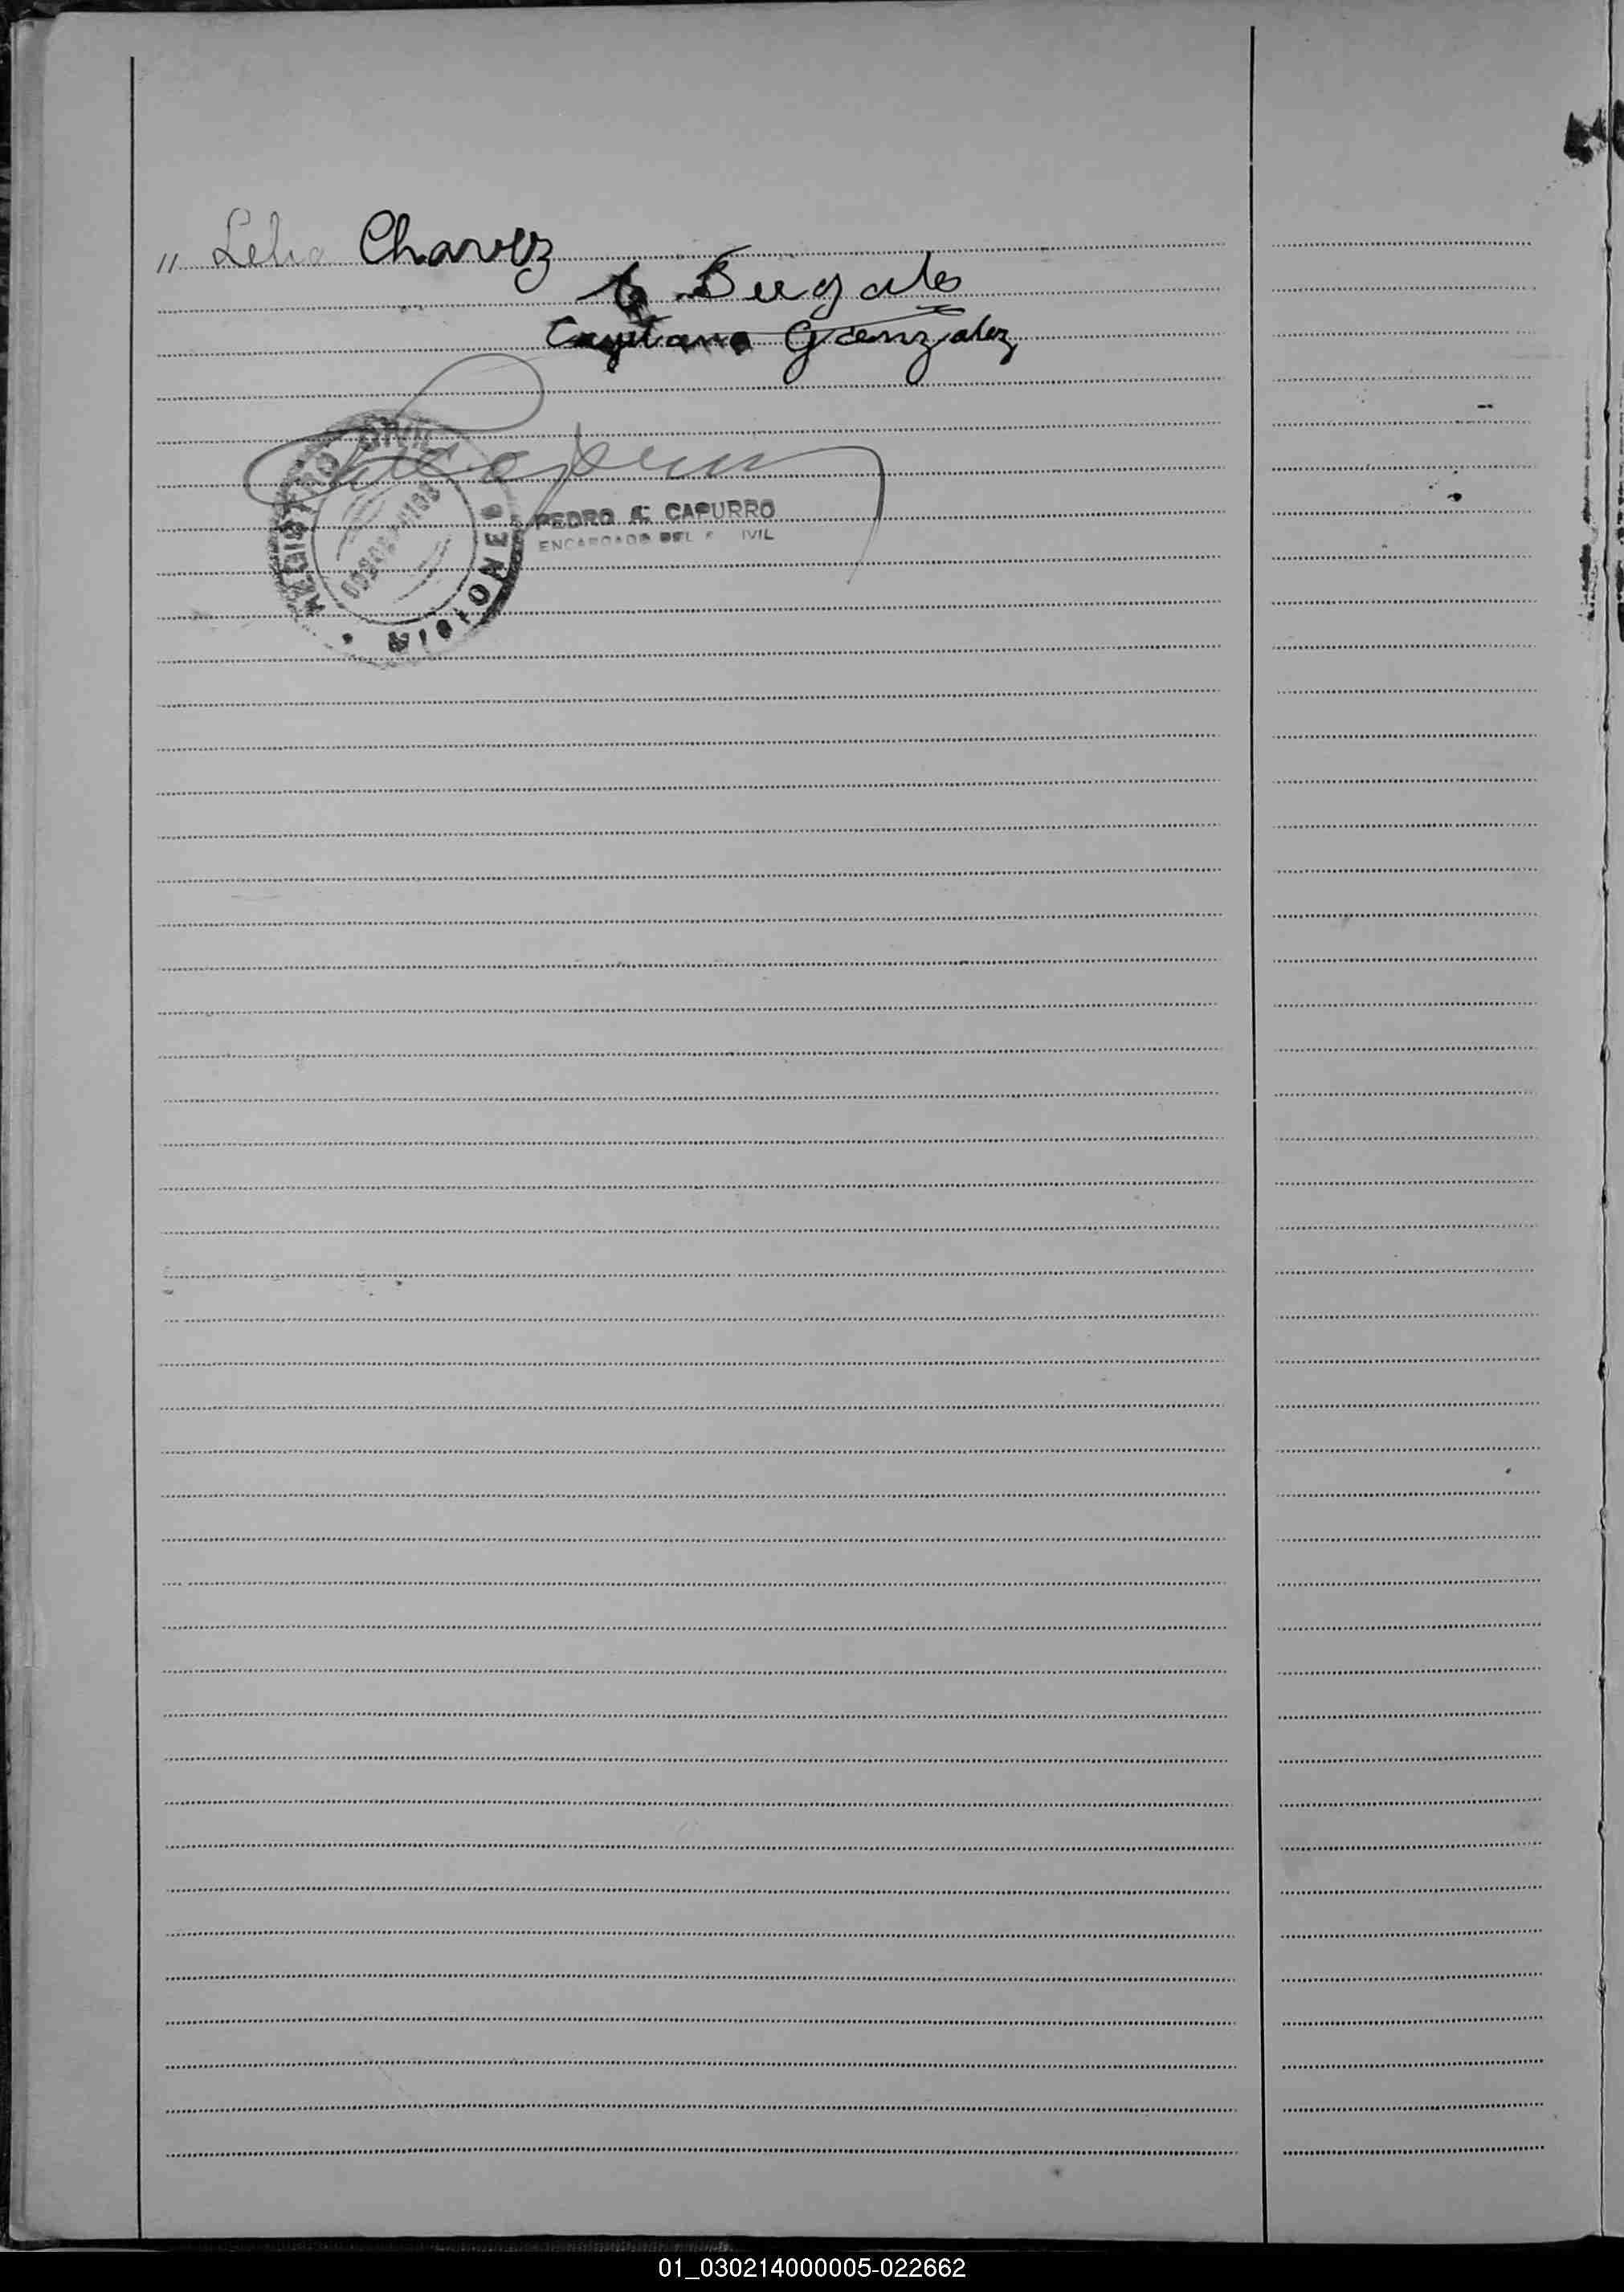 " Lelia Chavez
Bugatés
Cayetano Gonzalez
REGISTRO CIVIL
MISIONES
PEDRO A. CAPURRO
ENCARGADO DEL IVIL
01_030214000005-022662